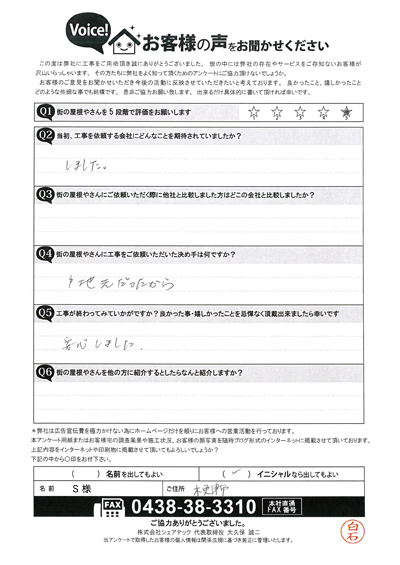 Voice! お客様の声をお聞かせください
この度は弊社に工事をご用命頂き誠にありがとうございました。世の中には弊社の存在やサービスをご存知ないお客様が
沢山いらっしゃいます。その方たちに弊社をよく知って頂くためのアンケートにご協力下けないでしょうか。
お客様のご意見をお聞かせいただき今後の活動に反映させていただきたいと考えております。良かったこと、嬉しかったこと
どのような些細な事でも結構です。是非ご協力お願い致します。出来るだけ具体的に書いて頂ければ幸いです。
Q1 街の屋根やさんを5段階で評価をお願いします
1 2 3 4 5
Q2 当初、工事を依頼する会社にどんなことを期待されていましたか？
しました。
Q3 街の屋根やさんにご依頼いただく際に他社と比較しました方はどこの会社と比較しましたか？
Q4 街の屋根やさんに工事をご依頼いただいた決め手は何ですか？
地元だったから
Q5 工事が終わってみていかがですか？良かった事・嬉しかったことを忌憚なく頂戴出来ましたら幸いです
安心しました。
Q6 街の屋根やさんを他の方に紹介するとしたらなんと紹介しますか？
＊弊社は広告宣伝費を極力かけない為にホームページだけを頼りにお客様への営業活動を行っております。
本アンケート用紙またはお客様宅の調査風景や施工状況、お客様の顔写真を随時ブログ形式のインターネットに掲載させて頂いております。
上記内容をインターネットや印刷物に掲載させて頂いてもよろしいでしょうか？
下記の中から〇印をお付け下さい。
（ ）名前を出してもよい （ ✓ ）イニシャルなら出してもよい
名前 S 様 ご住所 木更津
FAX 0438-38-3310 本社直通 FAX番号
ご協力ありがとうございました。
株式会社シェアテック 代表取締役 大久保 誠二
当アンケートで取得したお客様の個人情報は関係法規に基づき厳正に管理いたします。
白石